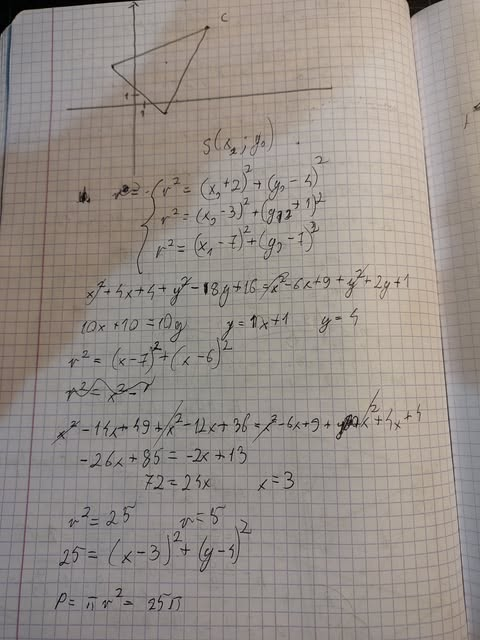 C
1
1
S(x₀; y₀)
r² = (x₀+2)² + (y₀-4)²
r² = (x₀-3)² + (y₀+1)²
r² = (x₀-7)² + (y₀-7)²
x² + 4x + 4 + y² - 8y + 16 = x² - 6x + 9 + y² + 2y + 1
10x + 10 = 10y y = x + 1 y = 4
r² = (x-7)² + (x-6)²
r² = x² -
x² - 14x + 49 + x² - 12x + 36 = x² - 6x + 9 + x² + 4x + 4
-26x + 85 = -2x + 13
72 = 24x x = 3
r² = 25 r = 5
25 = (x-3)² + (y-4)²
P = πr² = 25π